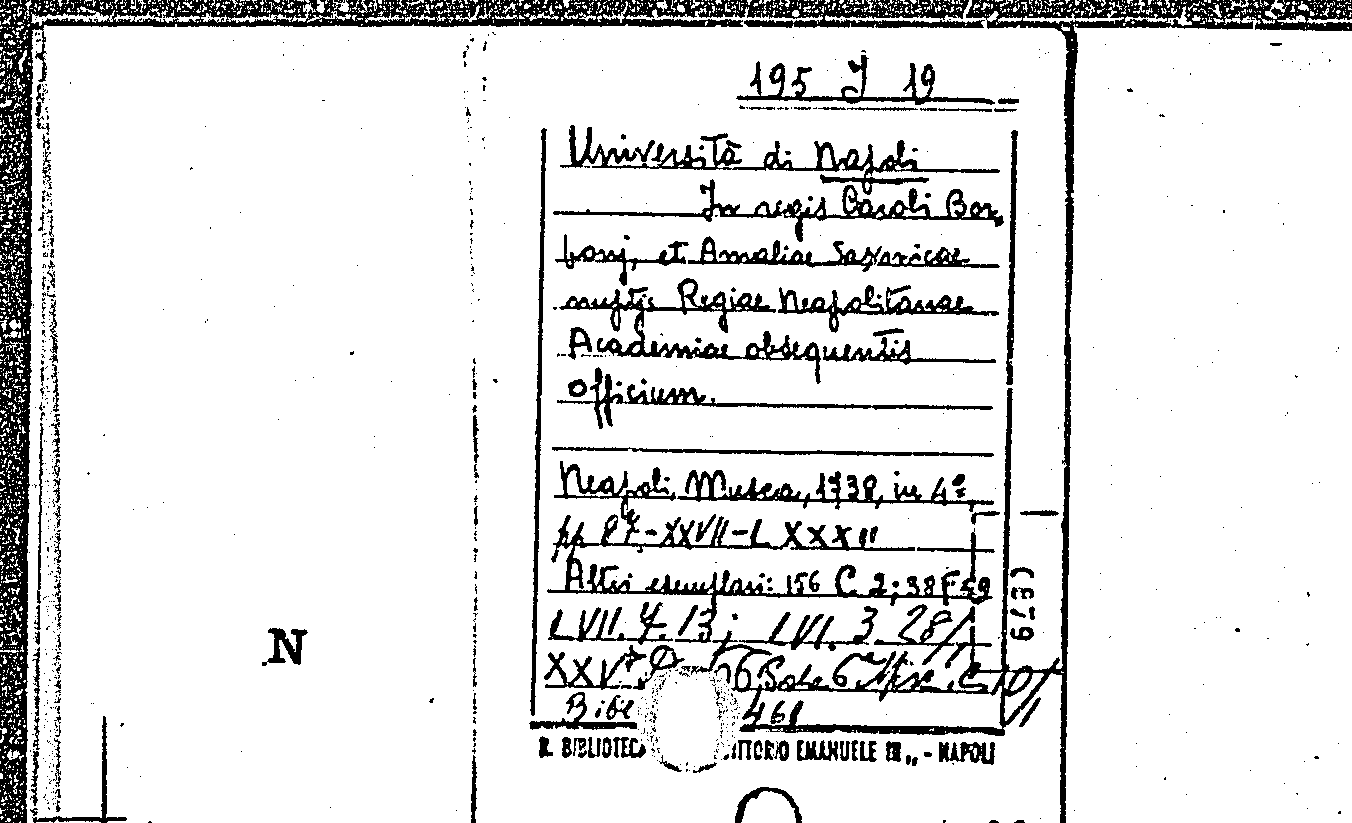 195 J 19
Università di Napoli
In regis Caroli Bor,
bonj, et Amaliae Saxonicae
nuptijs Regiae Neapolitanae
Academiae obsequentis
officium.
Neapoli, Musca, 1738, in 4º
pp 87-XXVII-LXXXII
Altri esemplari: 156 C 2; 38 F 59
LVII. 4. 13; LVI. 3. 28/
XXV
Bibl 461
R. BIBLIOTECA VITTORIO EMANUELE III„ - NAPOLI
N